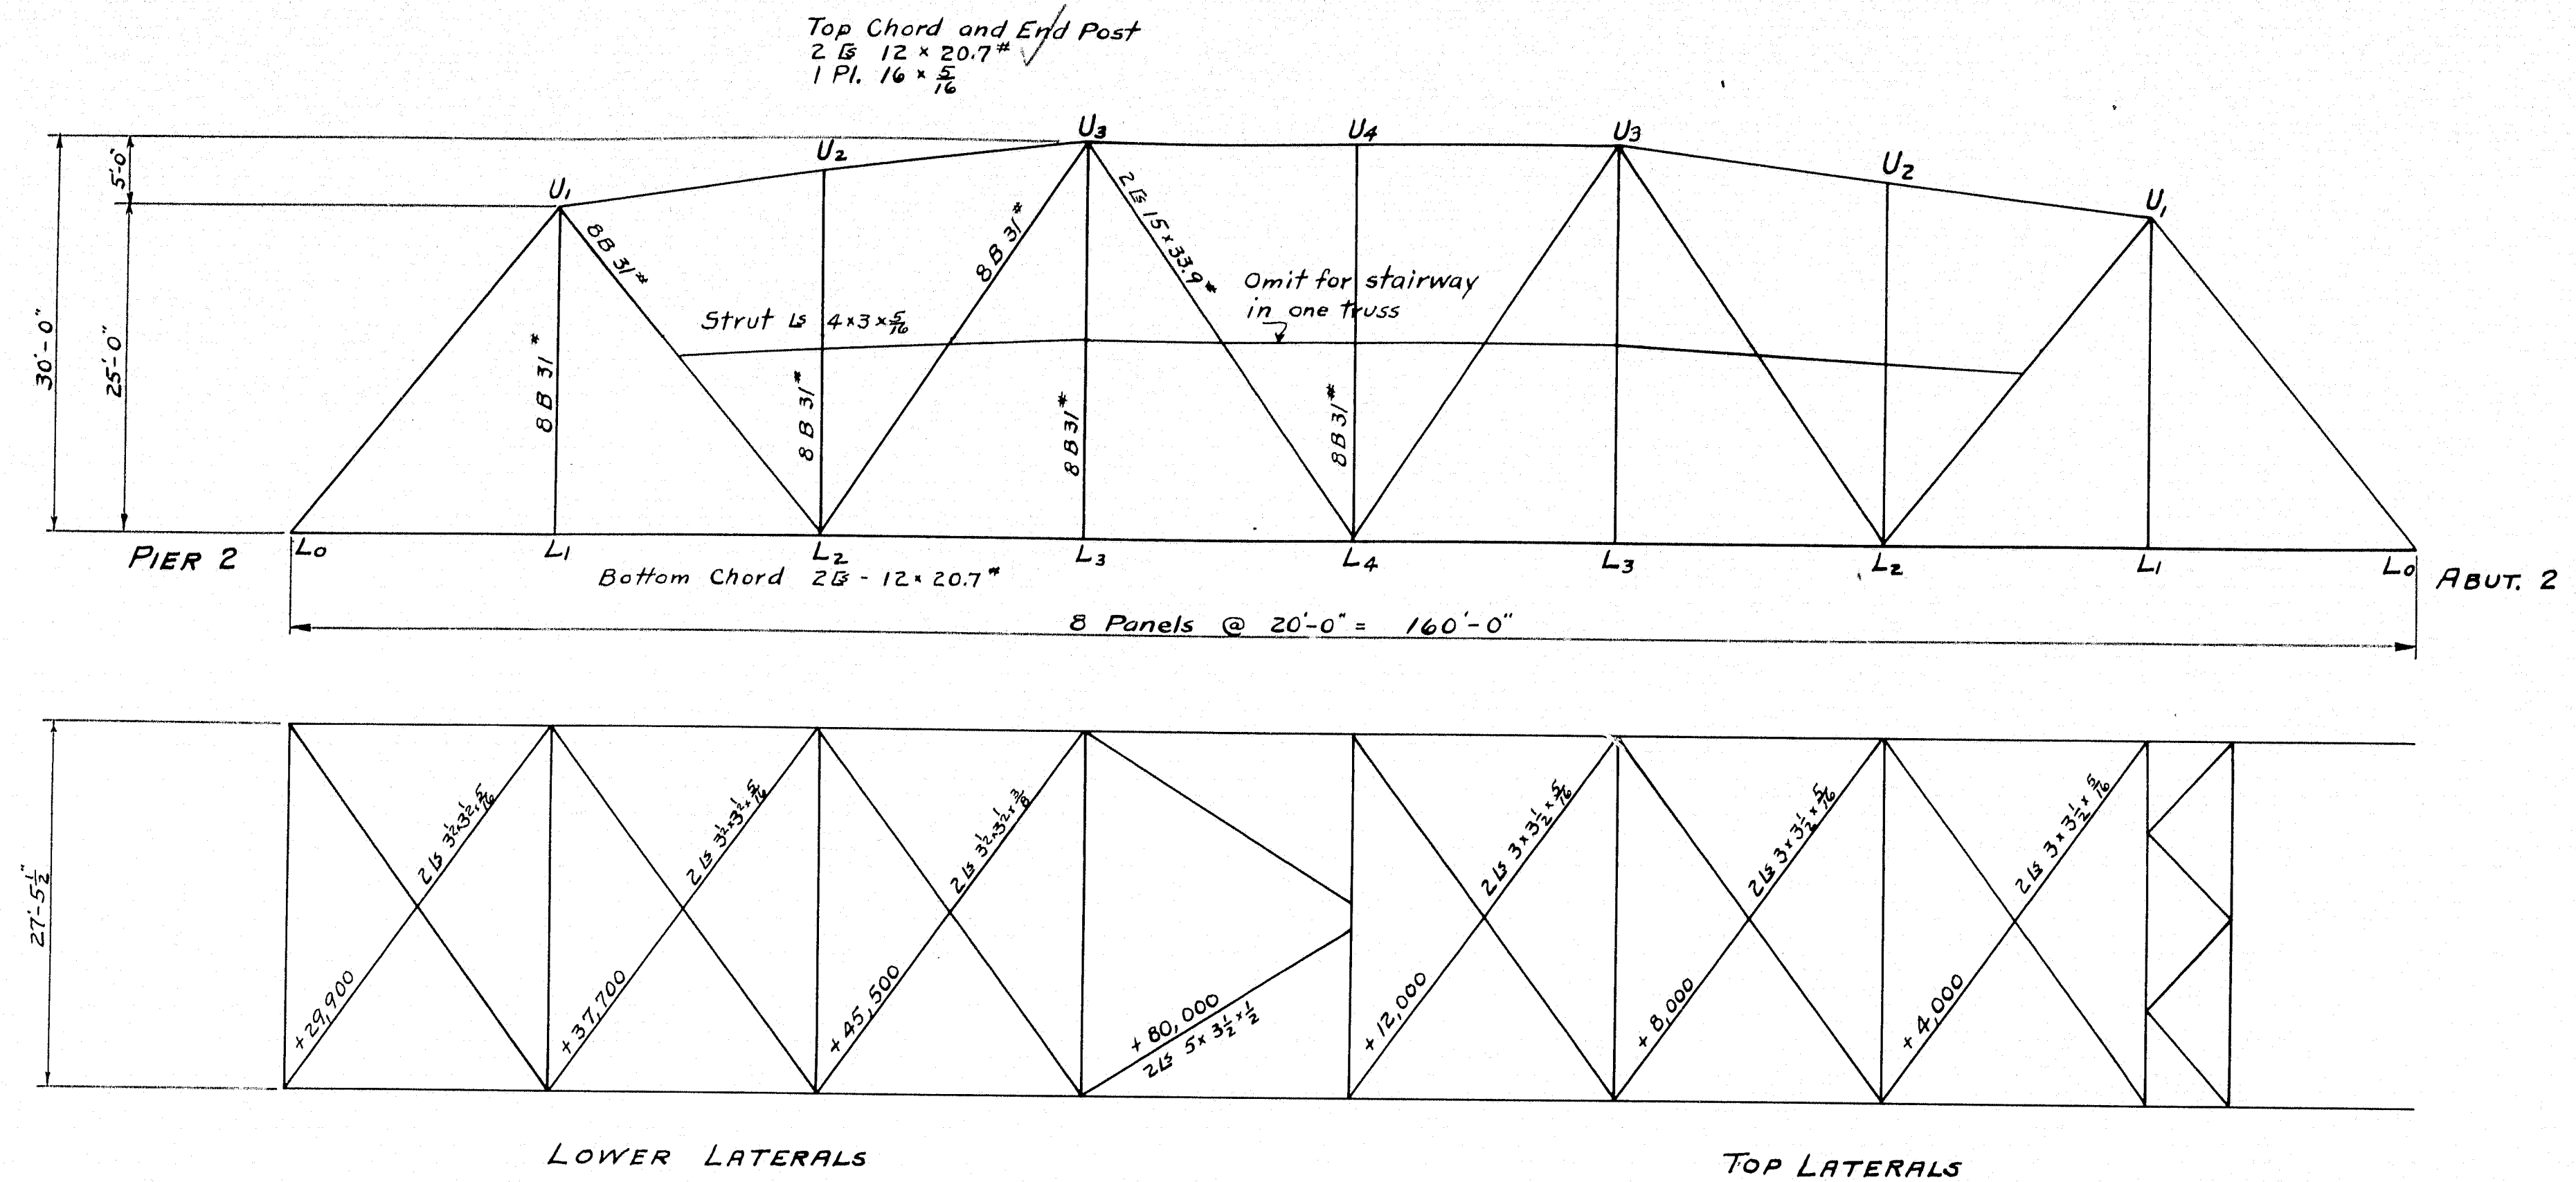 Top Chord and End Post
2 [s 12 × 20.7#
1 Pl. 16 × 5/16
U1
U2
U3
U4
U3
U2
U1
5'-0"
30'-0"
25'-0"
8 B 31#
8 B 31#
8 B 31#
8 B 31#
2 [s 15 × 33.9#
8 B 31#
8 B 31#
Strut Ls 4×3×5/16
Omit for stairway
in one truss
PIER 2
L0
L1
L2
L3
L4
L3
L2
L1
L0
ABUT. 2
Bottom Chord 2[s - 12 × 20.7#
8 Panels @ 20'-0" = 160'-0"
27'-5 1/2"
2 Ls 3 1/2 × 3 1/2 × 5/16
+29,900
2 Ls 3 1/2 × 3 1/2 × 5/16
+37,700
2 Ls 3 1/2 × 3 1/2 × 3/8
+45,500
+80,000
2Ls 5 × 3 1/2 × 1/2
2 Ls 3 × 3 1/2 × 5/16
+12,000
2 Ls 3 × 3 1/2 × 5/16
+8,000
2 Ls 3 × 3 1/2 × 5/16
+4,000
LOWER LATERALS
TOP LATERALS